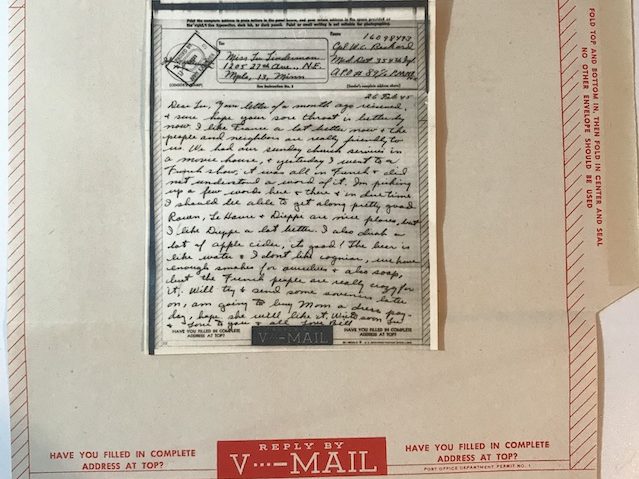 Print the complete address in plain letters in the panel below, and your return address in the space provided on
the right. Use typewriter, dark ink, or dark pencil. Faint or small writing is not suitable for photographing.
To
From
Miss Lu Linderman
1205 27th Ave., N.E.
Mpls, 13, Minn
16098493
Cpl W.C.
Med. Det
A.P.O.
(CENSOR'S STAMP)
See Instruction No. 2
(Sender's complete address above)
26 Feb 45
Dear Lu, Your letter of a month ago received,
& sure hope your sore throat is better by
now. I like France a lot better now & the
people and neighbors are really friendly to
us. We had our sunday church services in
a movie house, & yesterday I went to a
French show, it was all in French & did
not understand a word of it. Im picking
up a few words here & there & in due time
I should be able to get along pretty good.
Rouen, Le Havre & Dieppe are nice places, but
I like Dieppe a lot better. I also drink a
lot of apple cider, its good! The beer is
like water & I dont like cogniac, we have
enough smokes for ourselves & also soap,
but the French people are really crazy for
it. Will try & send some souvenirs later
on, am going to buy Mom a dress pay-
day, hope she will like it. Write soon Lu
& love to you & all Love Bill
HAVE YOU FILLED IN COMPLETE
ADDRESS AT TOP?
V···—MAIL
HAVE YOU FILLED IN COMPLETE
ADDRESS AT TOP?
HAVE YOU FILLED IN COMPLETE
ADDRESS AT TOP?
REPLY BY
V···—MAIL
HAVE YOU FILLED IN COMPLETE
ADDRESS AT TOP?
POST OFFICE DEPARTMENT PERMIT NO. 1
FOLD TOP AND BOTTOM IN, THEN FOLD IN CENTER AND SEAL
NO OTHER ENVELOPE SHOULD BE USED